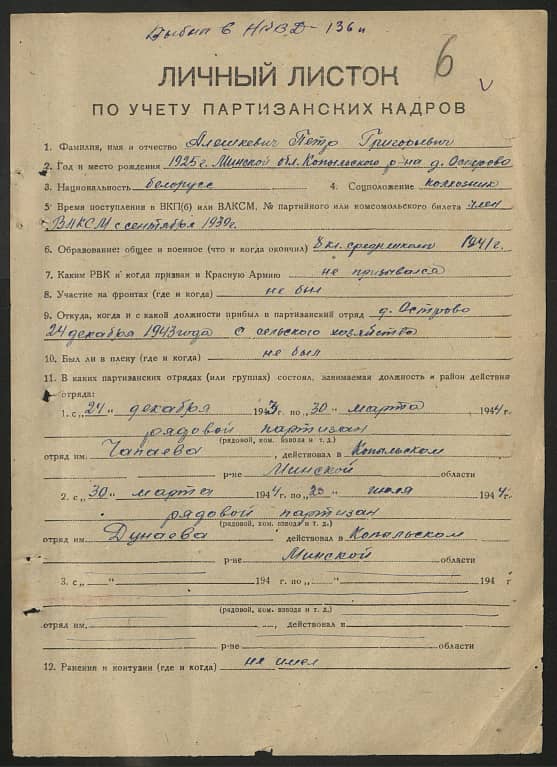 Выбыл в НКВД - 136 н
6
ЛИЧНЫЙ ЛИСТОК
ПО УЧЕТУ ПАРТИЗАНСКИХ КАДРОВ
1. Фамилия, имя и отчество Алешкевич Петр Григорьевич
2. Год и место рождения 1925 г. Минской обл. Копыльского р-на д. Острово
3. Национальность белорусс 4. Соцположение колхозник
5. Время поступления в ВКП(б) или ВЛКСМ, № партийного или комсомольского билета член
ВЛКСМ с сентября 1939г.
6. Образование: общее и военное (что и когда окончил) 8 кл. средн. школ. 1941 г.
7. Каким РВК и когда призван в Красную Армию не призывался
8. Участие на фронтах (где и когда) не был
9. Откуда, когда и с какой должности прибыл в партизанский отряд д. Острово
24 декабря 1943 года с сельского хозяйства
10. Был ли в плену (где и когда) не был
11. В каких партизанских отрядах (или группах) состоял, занимаемая должность и район действия
отряда:
1. с „24" декабря 1943 г. по „30" марта 1944 г.
рядовой партизан
(рядовой, ком. взвода и т. д.)
отряд им. Чапаева, действовал в Копыльском
р-не Минской области
2. с „30" марта 1944 г. по „20" июля 1944 г.
рядовой партизан
(рядовой, ком. взвода и т. д.)
отряд им. Дунаева действовал в Копыльском
р-не Минской области
3. с „ " 194 г. по „ " 194 г
(рядовой, ком. взвода и т. д.)
отряд им. , действовал в
р-не области
12. Ранения и контузии (где и когда) не имел